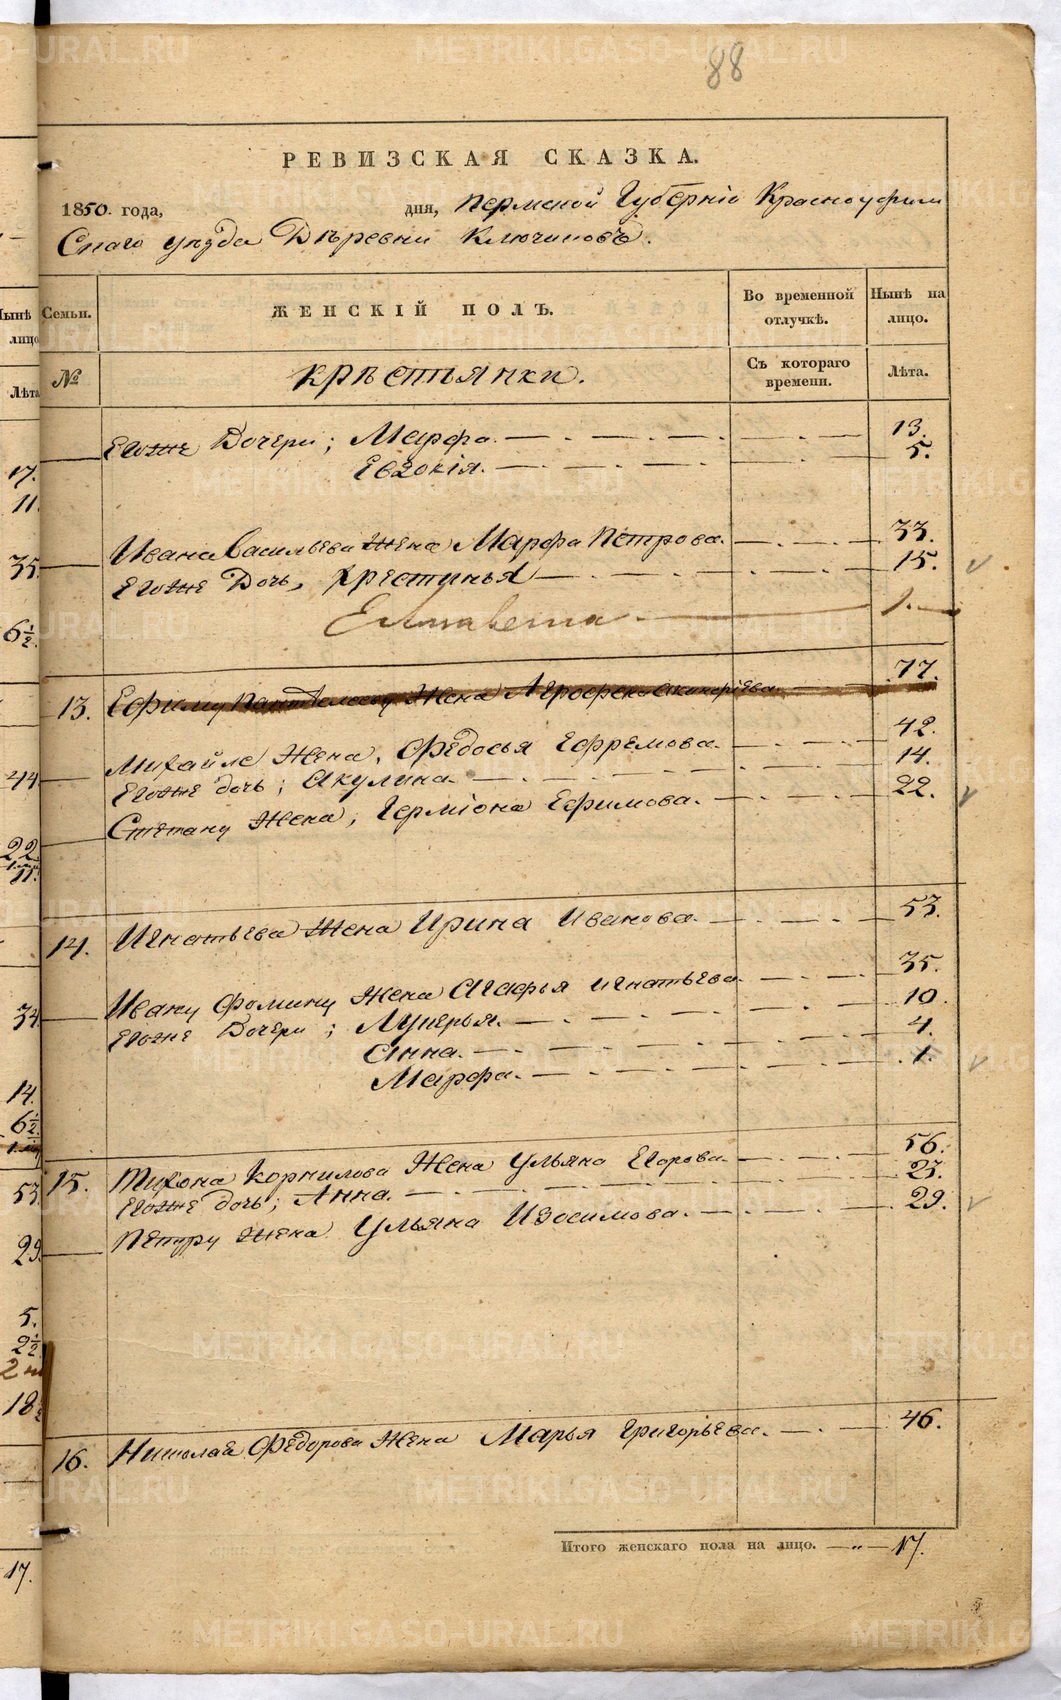 88
РЕВИЗСКАЯ СКАЗКА.
1850. года, дня, Пермской Губерніи Красноуфим
Скаго уѣзда Дѣревни Ключиковъ.
Нынѣ лицо Семьи. ЖЕНСКІЙ ПОЛЪ. Во временной отлучкѣ. Нынѣ на лицо.
Лѣта № Крѣстьянки. Съ котораго времени. Лѣта.
Егоже Дочери; Марфа. 13.
17. Евдокія. 5.
11.
35. Ивана Васильева Жена Марфа Петрова. 33.
Егоже Дочь, Хрестинья 15.
6½. Елизавета 1.
13. Ефиму Жена 77.
Михайле Жена, Федосья Ефремова. 42.
44 Егоже дочь; Акулина. 14.
Степану Жена, Герміона Ефимова. 22.
22
11.
14. Игнатьева Жена Ирина Иванова. 53.
Ивану Фомину Жена Агафья Игнатьева 35.
34 Егоже Дочери; Лукерья. 10.
Анна. 4.
Марфа. 1.
14.
6½.
15. Тихона Корнилова Жена Ульяна Егорова. 56.
53. Егоже дочь; Анна. 23.
29. Петру Жена Ульяна Изосимова. 29.
5.
2½
2
18
16. Николая Федорова Жена Марья Григорьева. 46.
Итого женскаго пола на лицо. 17.
17.
METRIKI.GASO-URAL.RU